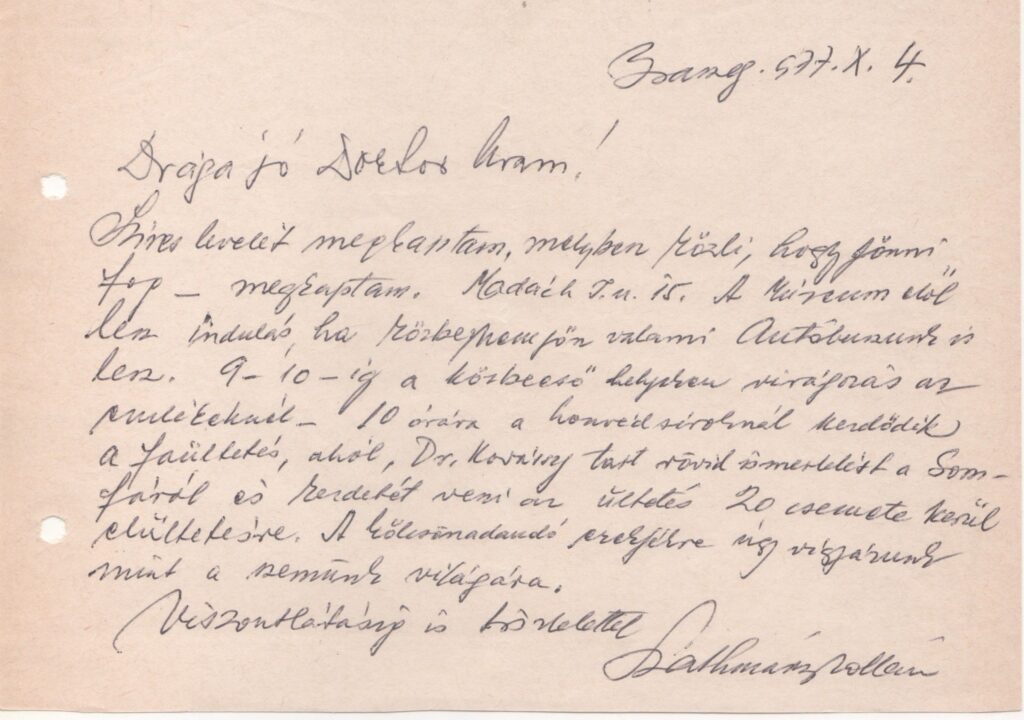 977. X. 4.
Drága jó Doktor Uram!
Szíves levelét megkaptam, melyben közli, hogy jönni
fog – megkaptam. Madách I. u. 15. A Múzeum elől
lesz indulás, ha közbe nem jön valami Autóbuszunk is
lesz. 9–10-ig a közbeeső helyeken virágozás az
emlékeknél – 10 órára a honvédsíroknál kezdődik
a faültetés, ahol, Dr. Kovássy tart rövid ismertetést a Som-
fáról és kezdetét veszi az ültetés 20 csemete kerül
elültetésre. A kölcsönadandó ereklyékre úgy vigyázunk
mint a szemünk világára.
Viszontlátásig is tisztelettel
Szathmáry Zoltán